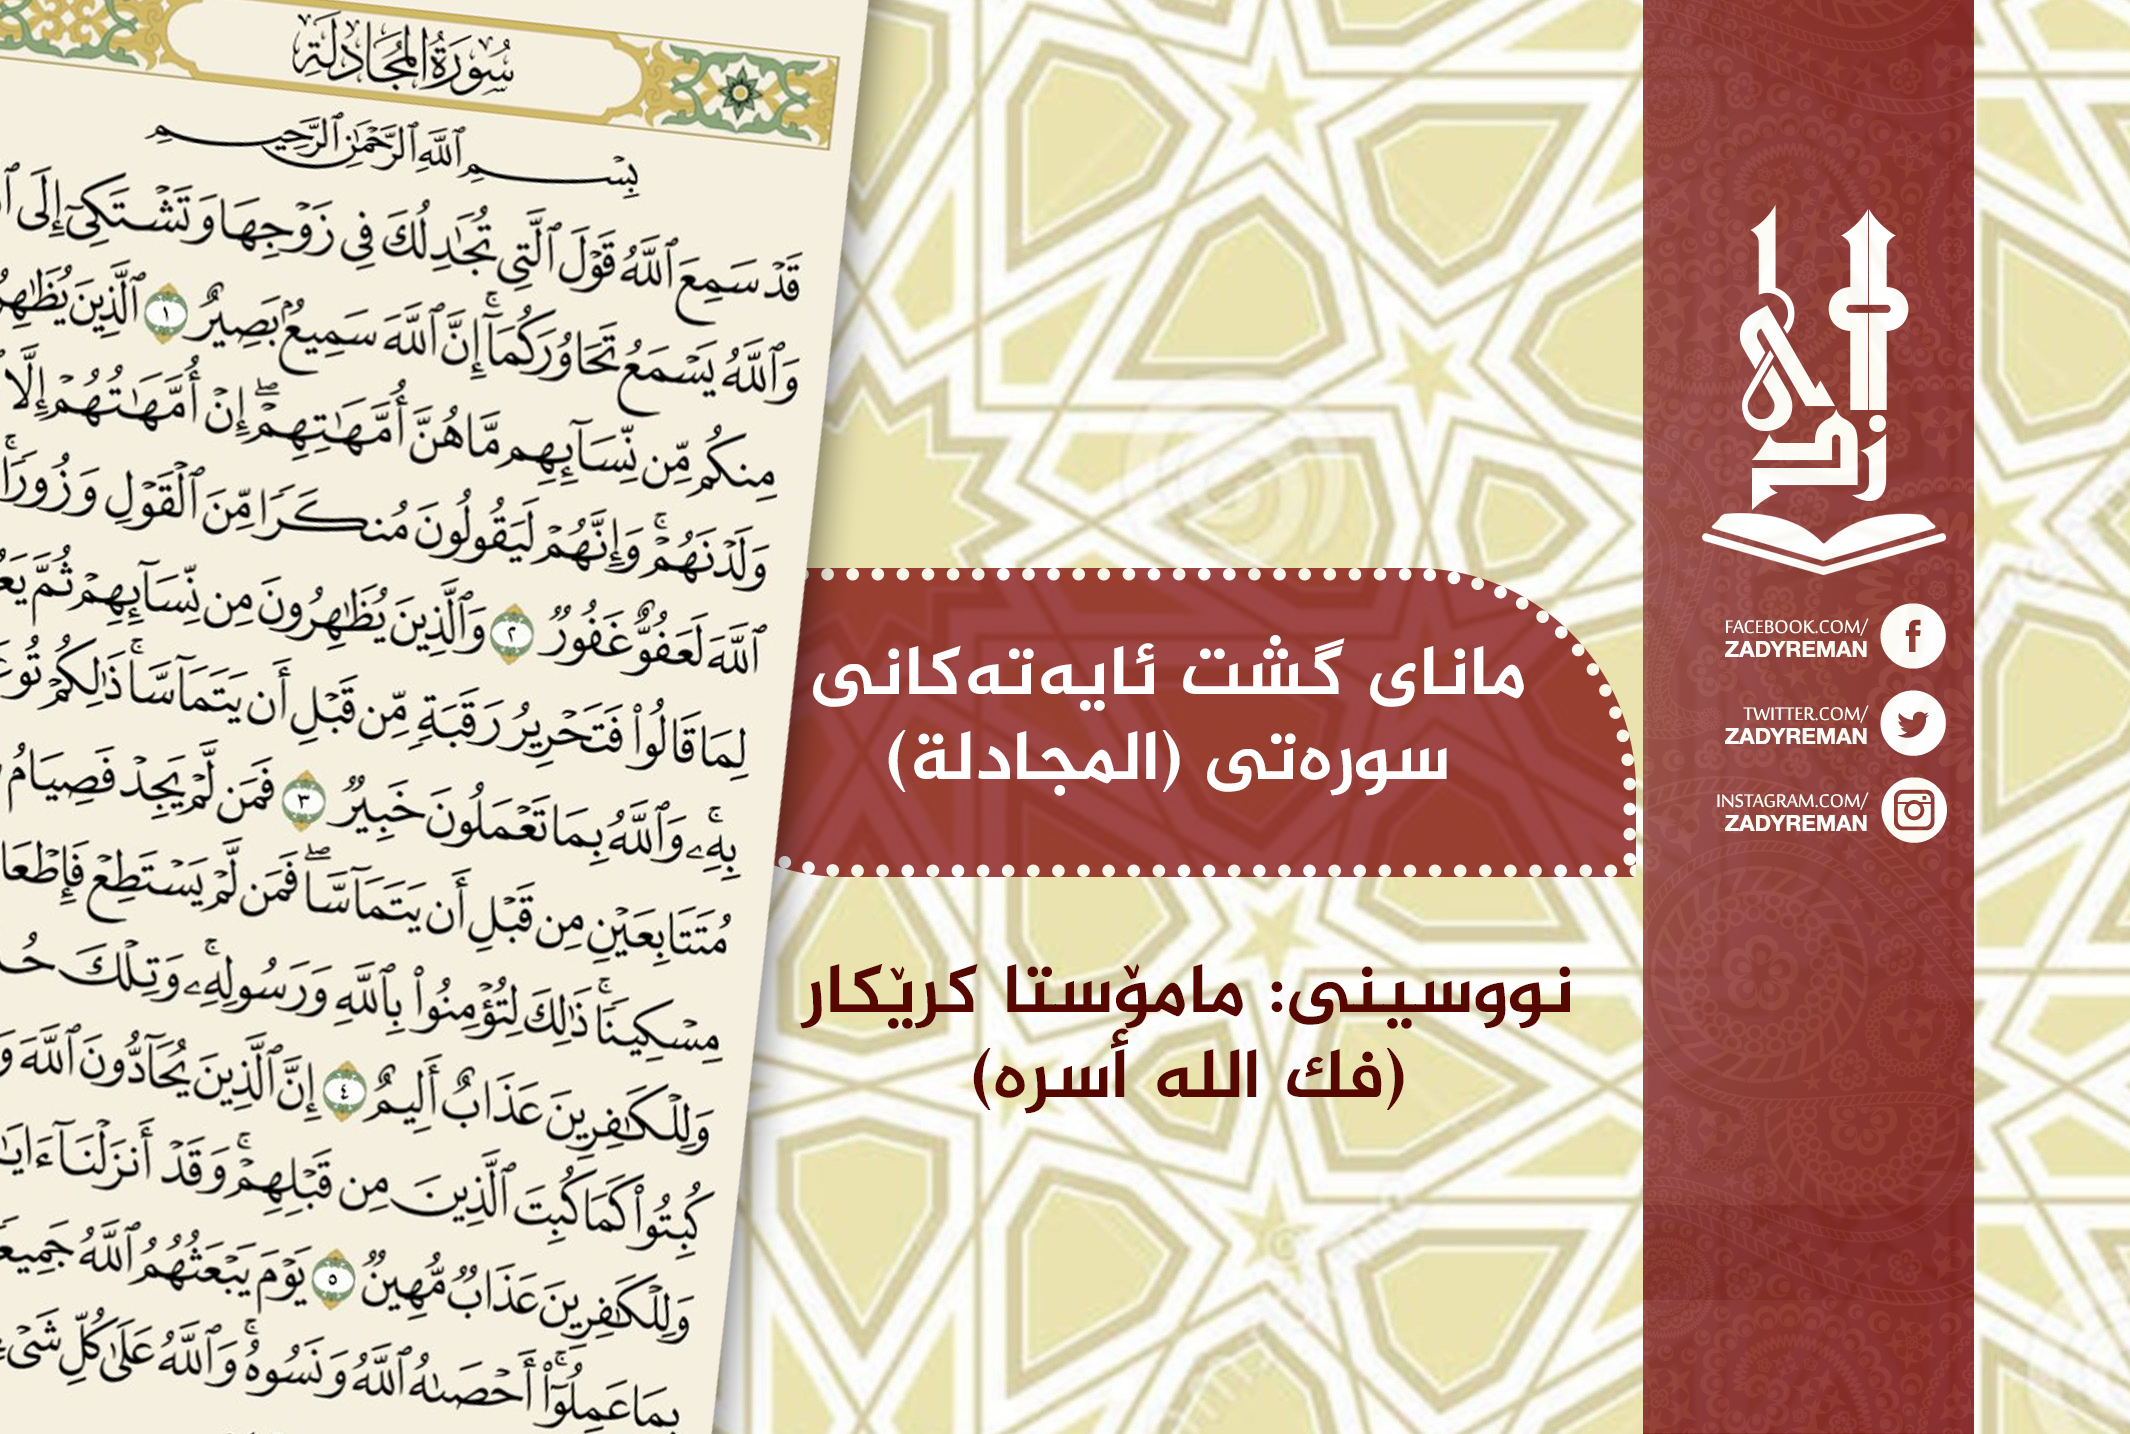 سُورَةُ المُجَادلَةِ
بِسْمِ ٱللَّهِ ٱلرَّحْمَٰنِ ٱلرَّحِيمِ
قَدْ سَمِعَ ٱللَّهُ قَوْلَ ٱلَّتِى تُجَٰدِلُكَ فِى زَوْجِهَا وَتَشْتَكِىٓ إِلَى
وَٱللَّهُ يَسْمَعُ تَحَاوُرَكُمَآ ۚ إِنَّ ٱللَّهَ سَمِيعٌۢ بَصِيرٌ ١ ٱلَّذِينَ يُظَٰهِرُ
مِنكُم مِّن نِّسَآئِهِم مَّا هُنَّ أُمَّهَٰتِهِمْ ۖ إِنْ أُمَّهَٰتُهُمْ إِلَّا
وَلَدْنَهُمْ ۚ وَإِنَّهُمْ لَيَقُولُونَ مُنكَرًا مِّنَ ٱلْقَوْلِ وَزُورًا ۚ
ٱللَّهَ لَعَفُوٌّ غَفُورٌ ٢ وَٱلَّذِينَ يُظَٰهِرُونَ مِن نِّسَآئِهِمْ ثُمَّ يَعُ
لِمَا قَالُوا۟ فَتَحْرِيرُ رَقَبَةٍ مِّن قَبْلِ أَن يَتَمَآسَّا ۚ ذَٰلِكُمْ تُوعَ
بِهِۦ ۚ وَٱللَّهُ بِمَا تَعْمَلُونَ خَبِيرٌ ٣ فَمَن لَّمْ يَجِدْ فَصِيَامُ
مُتَتَابِعَيْنِ مِن قَبْلِ أَن يَتَمَآسَّا ۖ فَمَن لَّمْ يَسْتَطِعْ فَإِطْعَا
مِسْكِينًا ۚ ذَٰلِكَ لِتُؤْمِنُوا۟ بِٱللَّهِ وَرَسُولِهِۦ ۚ وَتِلْكَ حُ
وَلِلْكَٰفِرِينَ عَذَابٌ أَلِيمٌ ٤ إِنَّ ٱلَّذِينَ يُحَآدُّونَ ٱللَّهَ وَ
كُبِتُوا۟ كَمَا كُبِتَ ٱلَّذِينَ مِن قَبْلِهِمْ ۚ وَقَدْ أَنزَلْنَآ ءَايَٰ
وَلِلْكَٰفِرِينَ عَذَابٌ مُّهِينٌ ٥ يَوْمَ يَبْعَثُهُمُ ٱللَّهُ جَمِيعً
بِمَا عَمِلُوٓا۟ ۚ أَحْصَىٰهُ ٱللَّهُ وَنَسُوهُ ۚ وَٱللَّهُ عَلَىٰ كُلِّ شَىْءٍ
مانای گشت ئایەتەکانی
سورەتی (المجادلة)
نووسینی: مامۆستا کرێکار
(فك الله أسره)
زادی ڕێمان
FACEBOOK.COM/
ZADYREMAN
TWITTER.COM/
ZADYREMAN
INSTAGRAM.COM/
ZADYREMAN